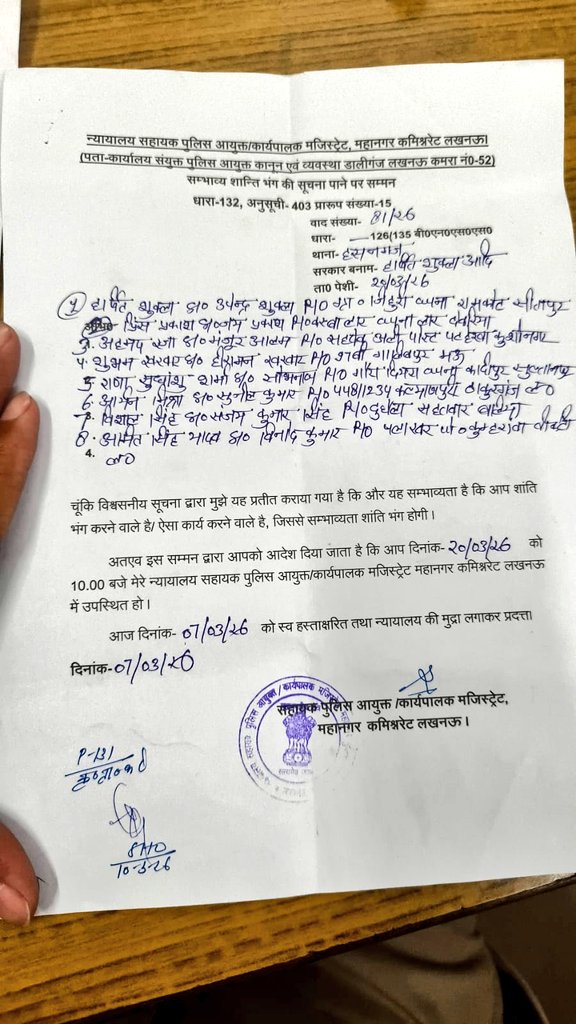 न्यायालय सहायक पुलिस आयुक्त/कार्यपालक मजिस्ट्रेट, महानगर कमिश्नरेट लखनऊ।
(पता-कार्यालय संयुक्त पुलिस आयुक्त कानून एवं व्यवस्था डालीगंज लखनऊ कमरा नं0-52)
सम्भाव्य शान्ति भंग की सूचना पाने पर सम्मन
धारा-132, अनुसूची- 403 प्रारूप संख्या-15
वाद संख्या- 81/26
धारा- 126/135 बी0एन0एस0एस0
थाना- हसनगंज
सरकार बनाम- हर्षित शुक्ला आदि
ता0 पेशी- 20/03/26
1 हर्षित शुक्ला s/o उपेन्द्र शुक्ला R/O ग्राम थाना रामकोट सीतापुर
प्रिंस प्रकाश s/o प्रकाश R/O कस्बा लार थाना लार देवरिया
3. अहमद रजा s/o मंजूर आलम R/O पोस्ट कुशीनगर
4. शुभम खरवार s/o खरवार R/O मऊ
5. शर्मा s/o R/O थाना कादीपुर सुल्तानपुर
6. मिश्रा s/o सुनील कुमार R/O 448/1234 ठाकुरगंज ल0
7. विशाल सिंह s/o संजय कुमार सिंह R/O सहतवार बलिया
8. सिंह यादव s/o विनोद कुमार R/O
4. ल0
चूंकि विश्वसनीय सूचना द्वारा मुझे यह प्रतीत कराया गया है कि और यह सम्भाव्यता है कि आप शांति
भंग करने वाले है/ ऐसा कार्य करने वाले है, जिससे सम्भाव्यता शांति भंग होगी।
अतएव इस सम्मन द्वारा आपको आदेश दिया जाता है कि आप दिनांक- 20/03/26 को
10.00 बजे मेरे न्यायालय सहायक पुलिस आयुक्त/कार्यपालक मजिस्ट्रेट महानगर कमिश्नरेट लखनऊ
में उपस्थित हो।
आज दिनांक- 07/03/26 को स्व हस्ताक्षरित तथा न्यायालय की मुद्रा लगाकर प्रदत्त।
दिनांक-07/03/26
सहायक पुलिस आयुक्त /कार्यपालक मजिस्ट्रेट,
महानगर कमिश्नरेट लखनऊ।
P-131
SHO
10-3-26